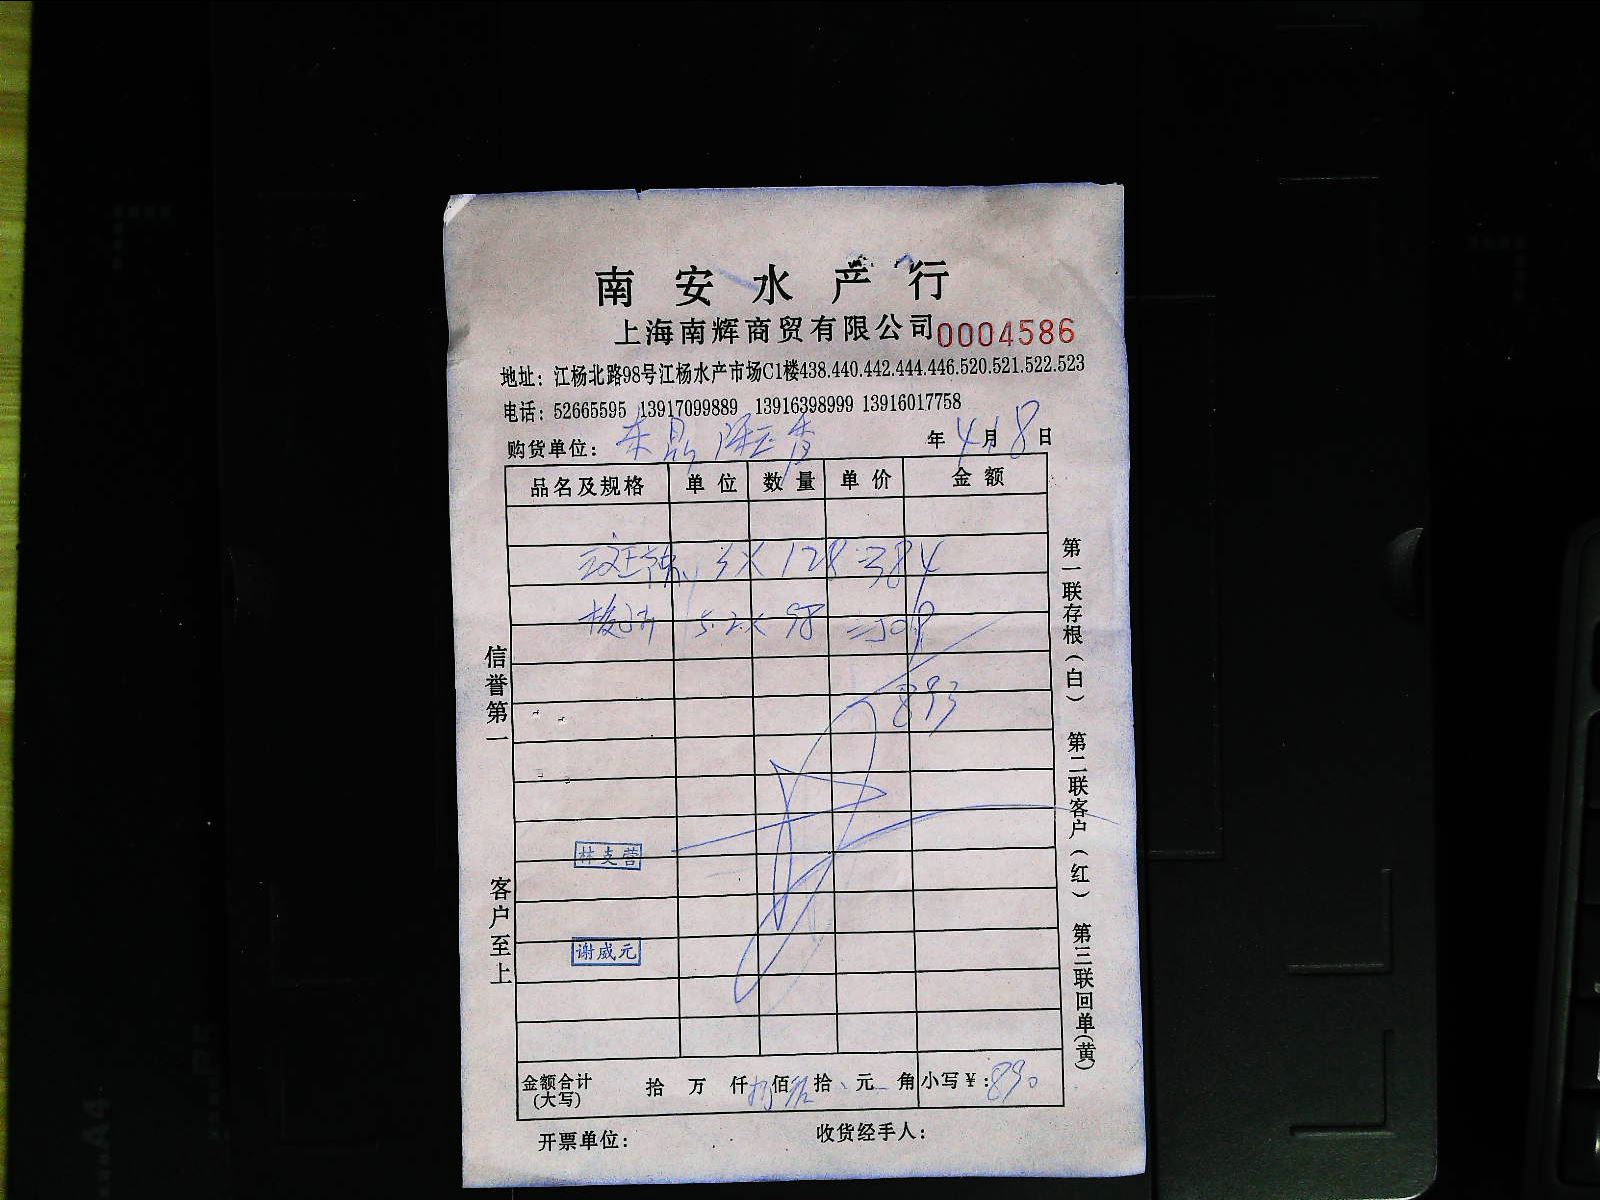 南安水产行
上海南辉商贸有限公司 0004586
地址：江杨北路98号江杨水产市场C1楼438.440.442.444.446.520.521.522.523
电话：52665595 13917099889 13916398999 13916017758
购货单位： 年4月8日
品名及规格 单位 数量 单价 金额
3X 128 384
5.2X 98 509
893
林支营
谢威元
金额合计(大写) 拾 万 仟 佰 拾 元 角 小写¥：890
开票单位： 收货经手人：
信誉第一 客户至上
第一联存根（白） 第二联客户（红） 第三联回单（黄）